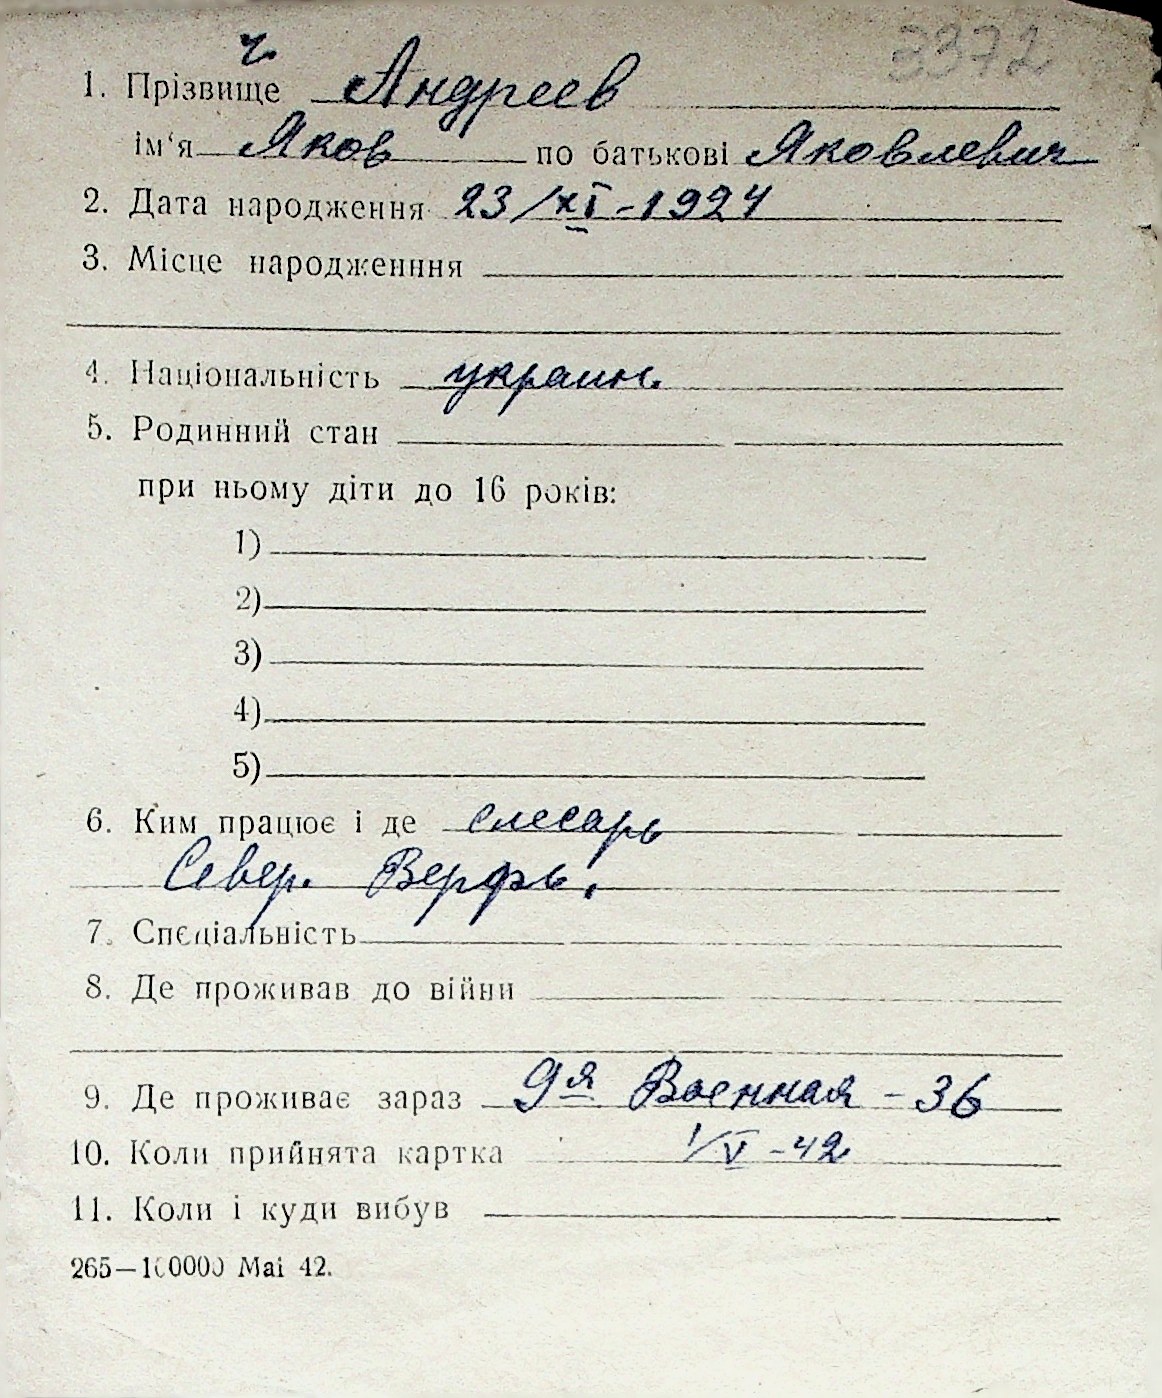 3372
ч.
1. Прізвище Андреев
ім‘я Яков по батькові Яковлевич
2. Дата народження 23/XI-1924
3. Місце народженння
4. Національність украин.
5. Родинний стан
при ньому діти до 16 років:
1)
2)
3)
4)
5)
6. Ким працює і де слесарь
Север. Верфь.
7. Спеціальність
8. Де проживав до війни
9. Де проживає зараз 9я Военная - 36
10. Коли прийнята картка 1/V-42
11. Коли і куди вибув
265—100000 Mai 42.